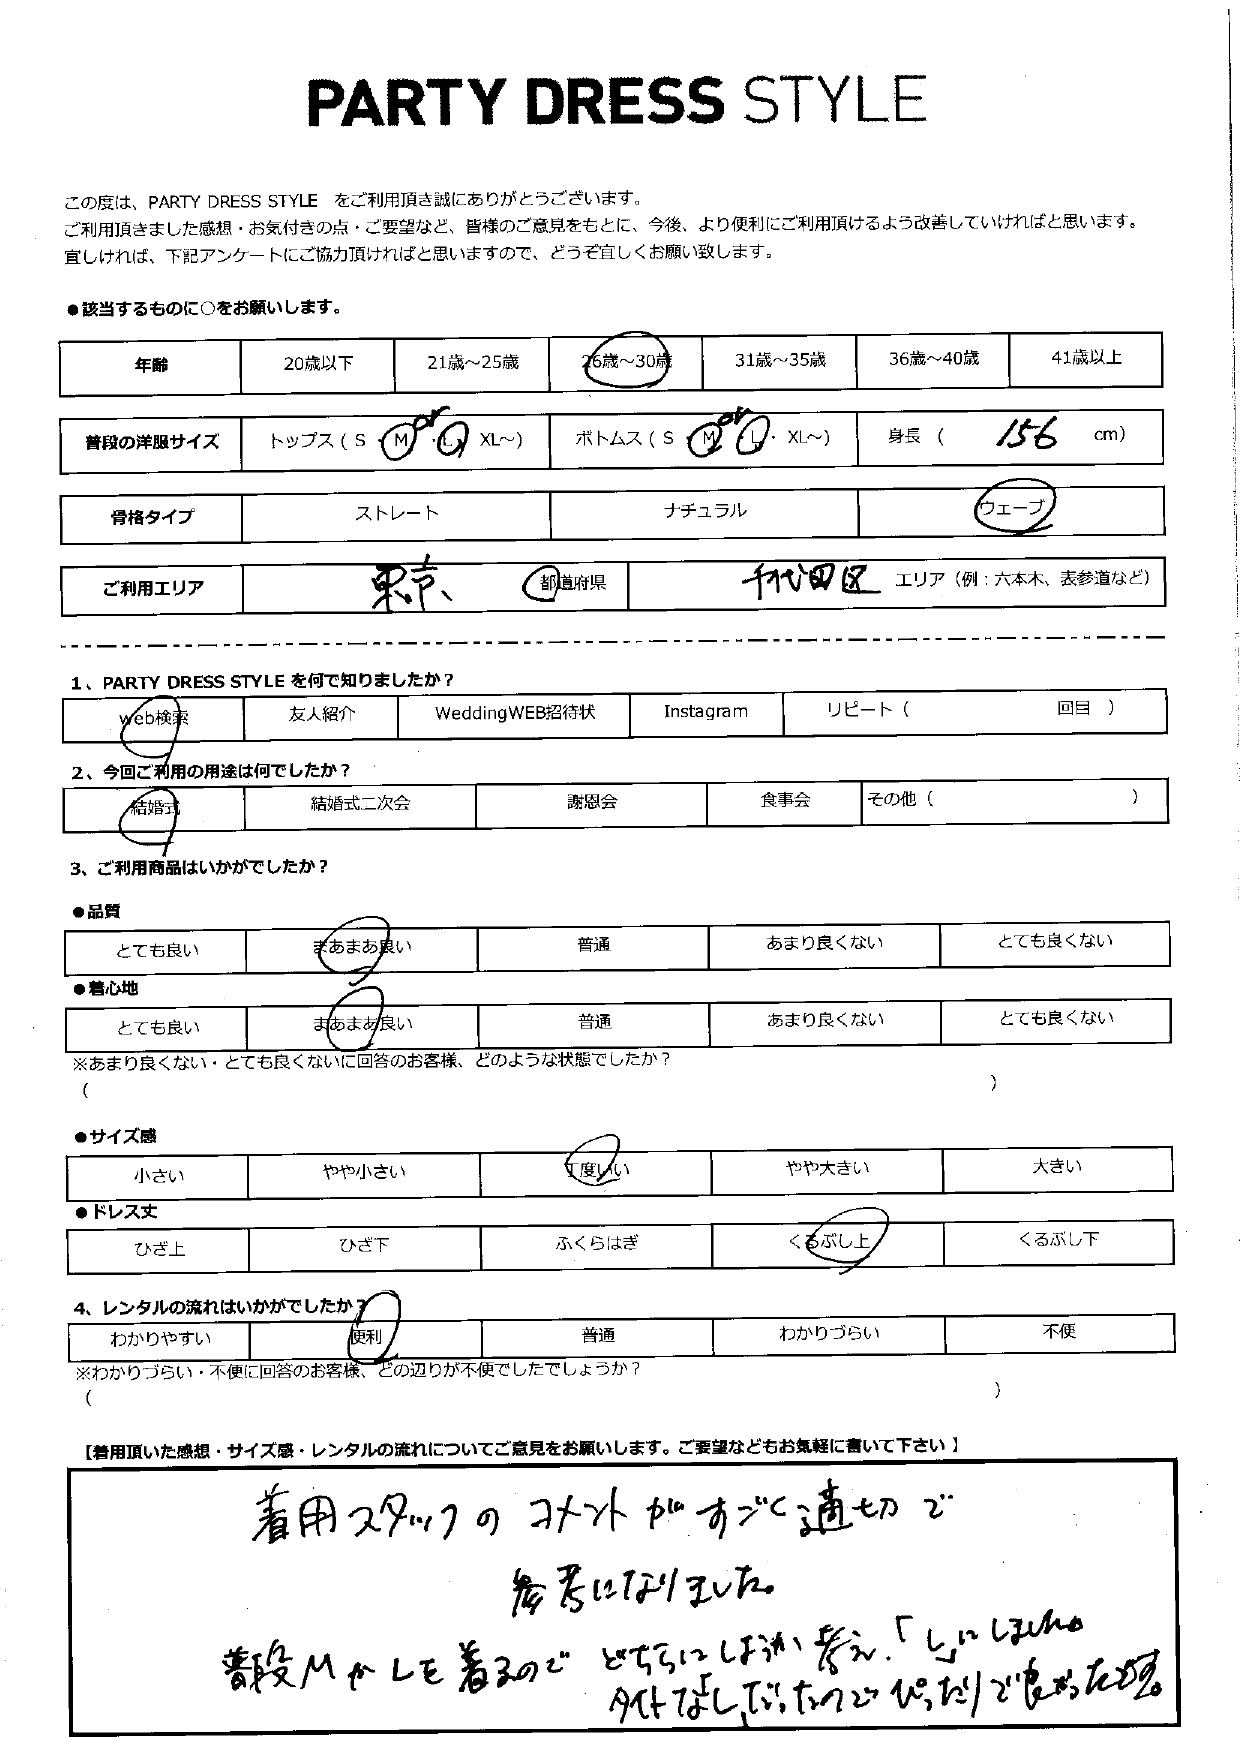 PARTY DRESS STYLE
この度は、PARTY DRESS STYLE をご利用頂き誠にありがとうございます。
ご利用頂きました感想・お気付きの点・ご要望など、皆様のご意見をもとに、今後、より便利にご利用頂けるよう改善していければと思います。
宜しければ、下記アンケートにご協力頂ければと思いますので、どうぞ宜しくお願い致します。
●該当するものに○をお願いします。
年齢 20歳以下 21歳～25歳 26歳～30歳 31歳～35歳 36歳～40歳 41歳以上
or or
普段の洋服サイズ トップス ( S ・ M ・ L ・ XL～) ボトムス ( S ・ M ・ L ・ XL～) 身長 ( 156 cm)
骨格タイプ ストレート ナチュラル ウェーブ
ご利用エリア 東京 都道府県 千代田区 エリア（例：六本木、表参道など）
1、PARTY DRESS STYLE を何で知りましたか？
web検索 友人紹介 WeddingWEB招待状 Instagram リピート（ 回目 ）
2、今回ご利用の用途は何でしたか？
結婚式 結婚式二次会 謝恩会 食事会 その他（ ）
3、ご利用商品はいかがでしたか？
●品質
とても良い まあまあ良い 普通 あまり良くない とても良くない
●着心地
とても良い まあまあ良い 普通 あまり良くない とても良くない
※あまり良くない・とても良くないに回答のお客様、どのような状態でしたか？
（ ）
●サイズ感
小さい やや小さい 丁度いい やや大きい 大きい
●ドレス丈
ひざ上 ひざ下 ふくらはぎ くるぶし上 くるぶし下
4、レンタルの流れはいかがでしたか？
わかりやすい 便利 普通 わかりづらい 不便
※わかりづらい・不便に回答のお客様、どの辺りが不便でしたでしょうか？
（ ）
【着用頂いた感想・サイズ感・レンタルの流れについてご意見をお願いします。ご要望などもお気軽に書いて下さい 】
着用スタッフの コメントが すごく適切で
参考になりました。
普段MかLを着るので どちらにしようか考え、「L」にしました。
タイトなLだったので ぴったりで良かったです。